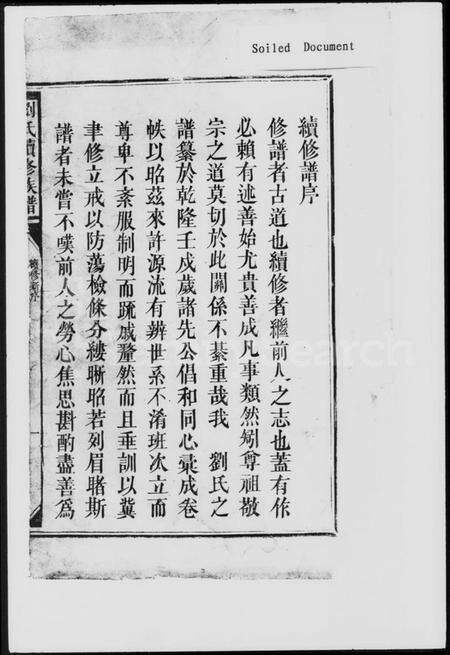 Soiled Document
續修譜序
修譜者古道也續修者繼前人之志也蓋有作
必賴有述善始尤貴善成凡事類然矧尊祖敬
宗之道莫切於此關係不綦重哉我 劉氏之
譜纂於乾隆壬戍歲諸先公倡和同心彙成卷
帙以昭茲來許源流有辨世系不淆班次立而
尊卑不紊服制明而疏戚釐然而且垂訓以冀
聿修立戒以防蕩檢條分縷晰昭若列眉睹斯
譜者未嘗不嘆前人之勞心焦思斟酌盡善為
劉氏續修族譜
續修新序